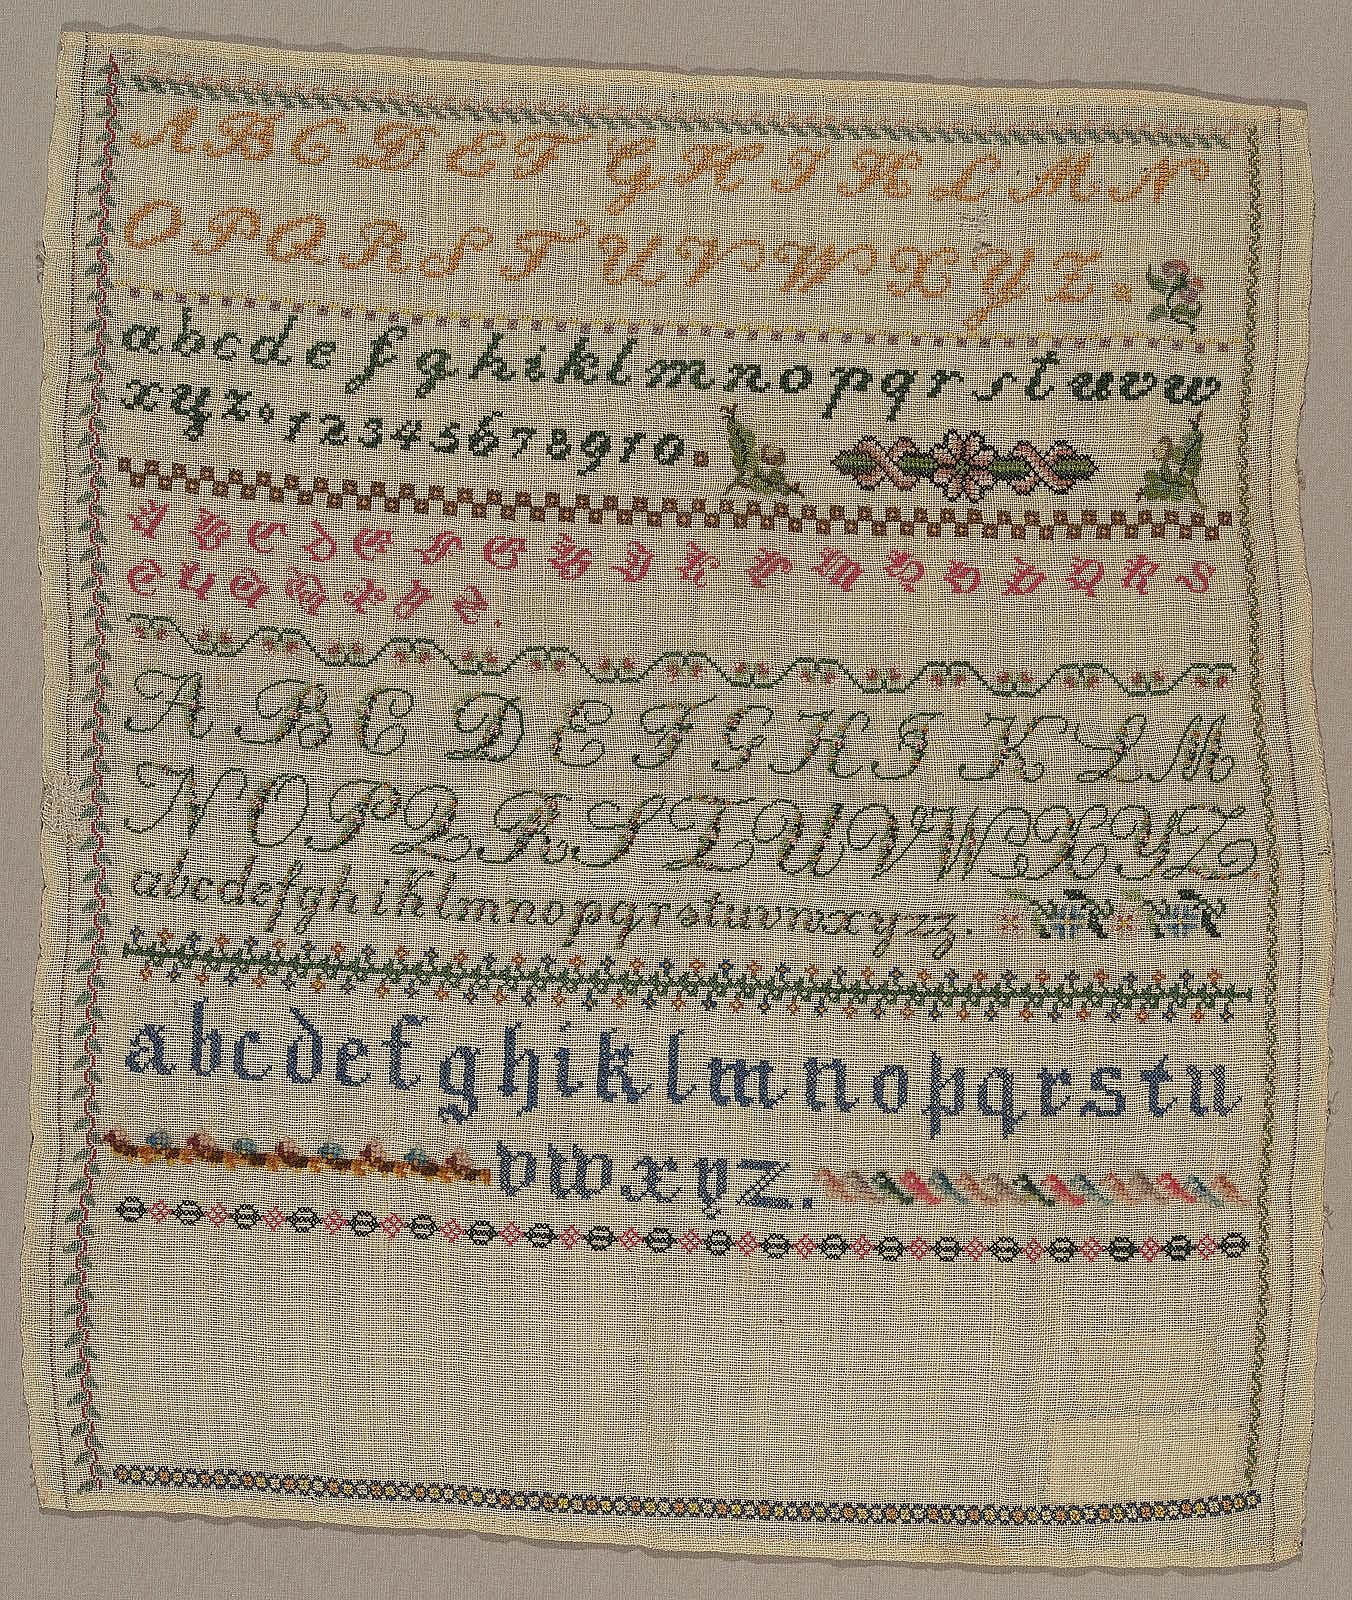 A B C D E F G H I K L M N
O P Q R S T U V W X Y Z.
a b c d e f g h i k l m n o p q r s t u v w
x y z. 1 2 3 4 5 6 7 8 9 10.
A B C D E F G H I K L M N O P Q R S
T U V W X Y Z.
A B C D E F G H I K L M
N O P Q R S T U V W X Y Z
a b c d e f g h i k l m n o p q r s t u v w x y z z.
a b c d e f g h i k l m n o p q r s t u
v w x y z.